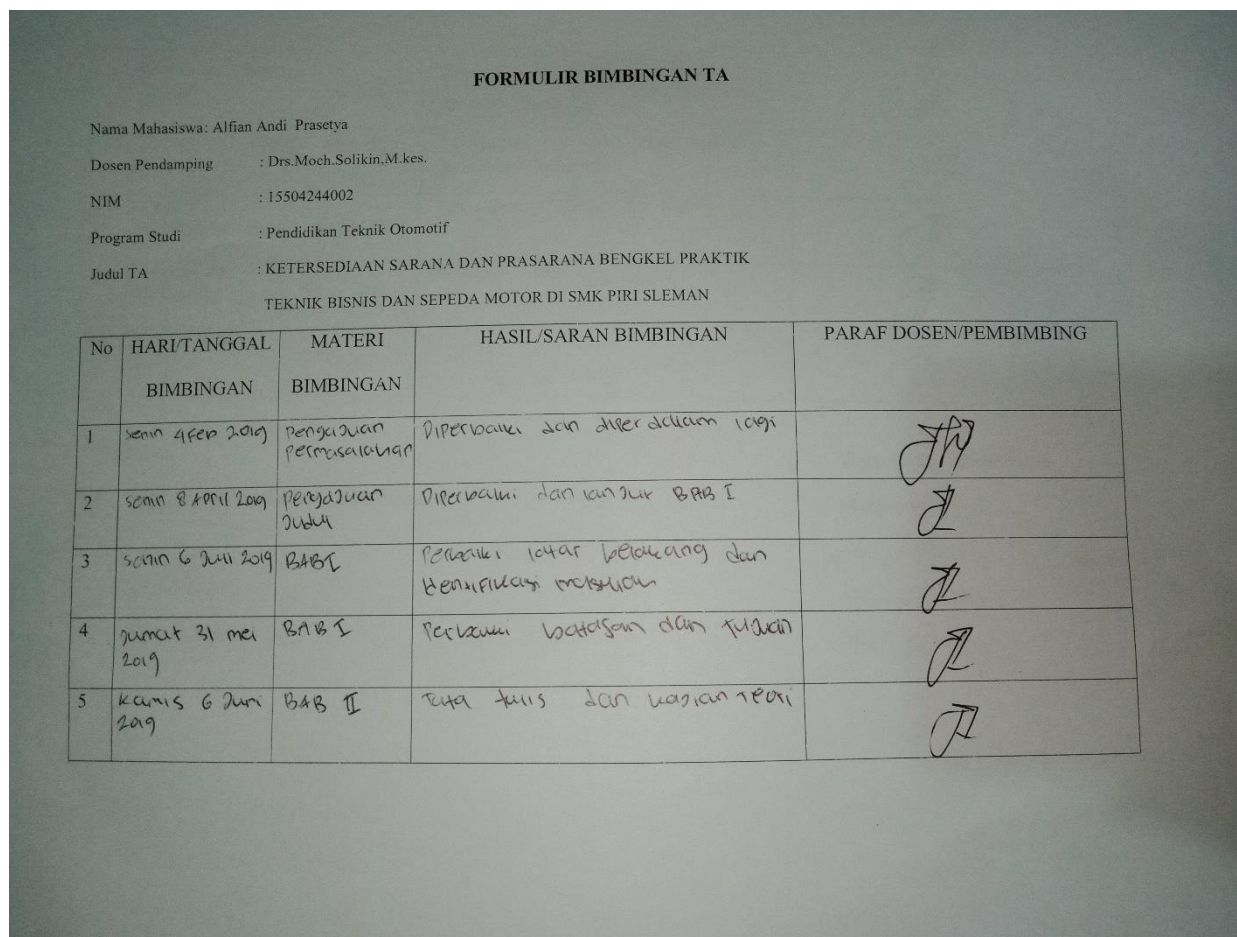 FORMULIR BIMBINGAN TA
Nama Mahasiswa: Alfian Andi Prasetya
Dosen Pendamping : Drs.Moch.Solikin,M.kes.
NIM : 15504244002
Program Studi : Pendidikan Teknik Otomotif
Judul TA : KETERSEDIAAN SARANA DAN PRASARANA BENGKEL PRAKTIK
TEKNIK BISNIS DAN SEPEDA MOTOR DI SMK PIRI SLEMAN
No HARI/TANGGAL BIMBINGAN MATERI BIMBINGAN HASIL/SARAN BIMBINGAN PARAF DOSEN/PEMBIMBING
1 senin 4 Feb 2019 pengajuan permasalahan Diperbaiki dan diperdalam lagi
2 senin 8 April 2019 pengajuan Judul Diperbaiki dan lanjut BAB I
3 senin 6 Juli 2019 BAB I Perbaiki latar belakang dan identifikasi masalah
4 jumat 31 mei 2019 BAB I Perbaiki batasan dan tujuan
5 kamis 6 Juni 2019 BAB II Tata tulis dan kajian teori